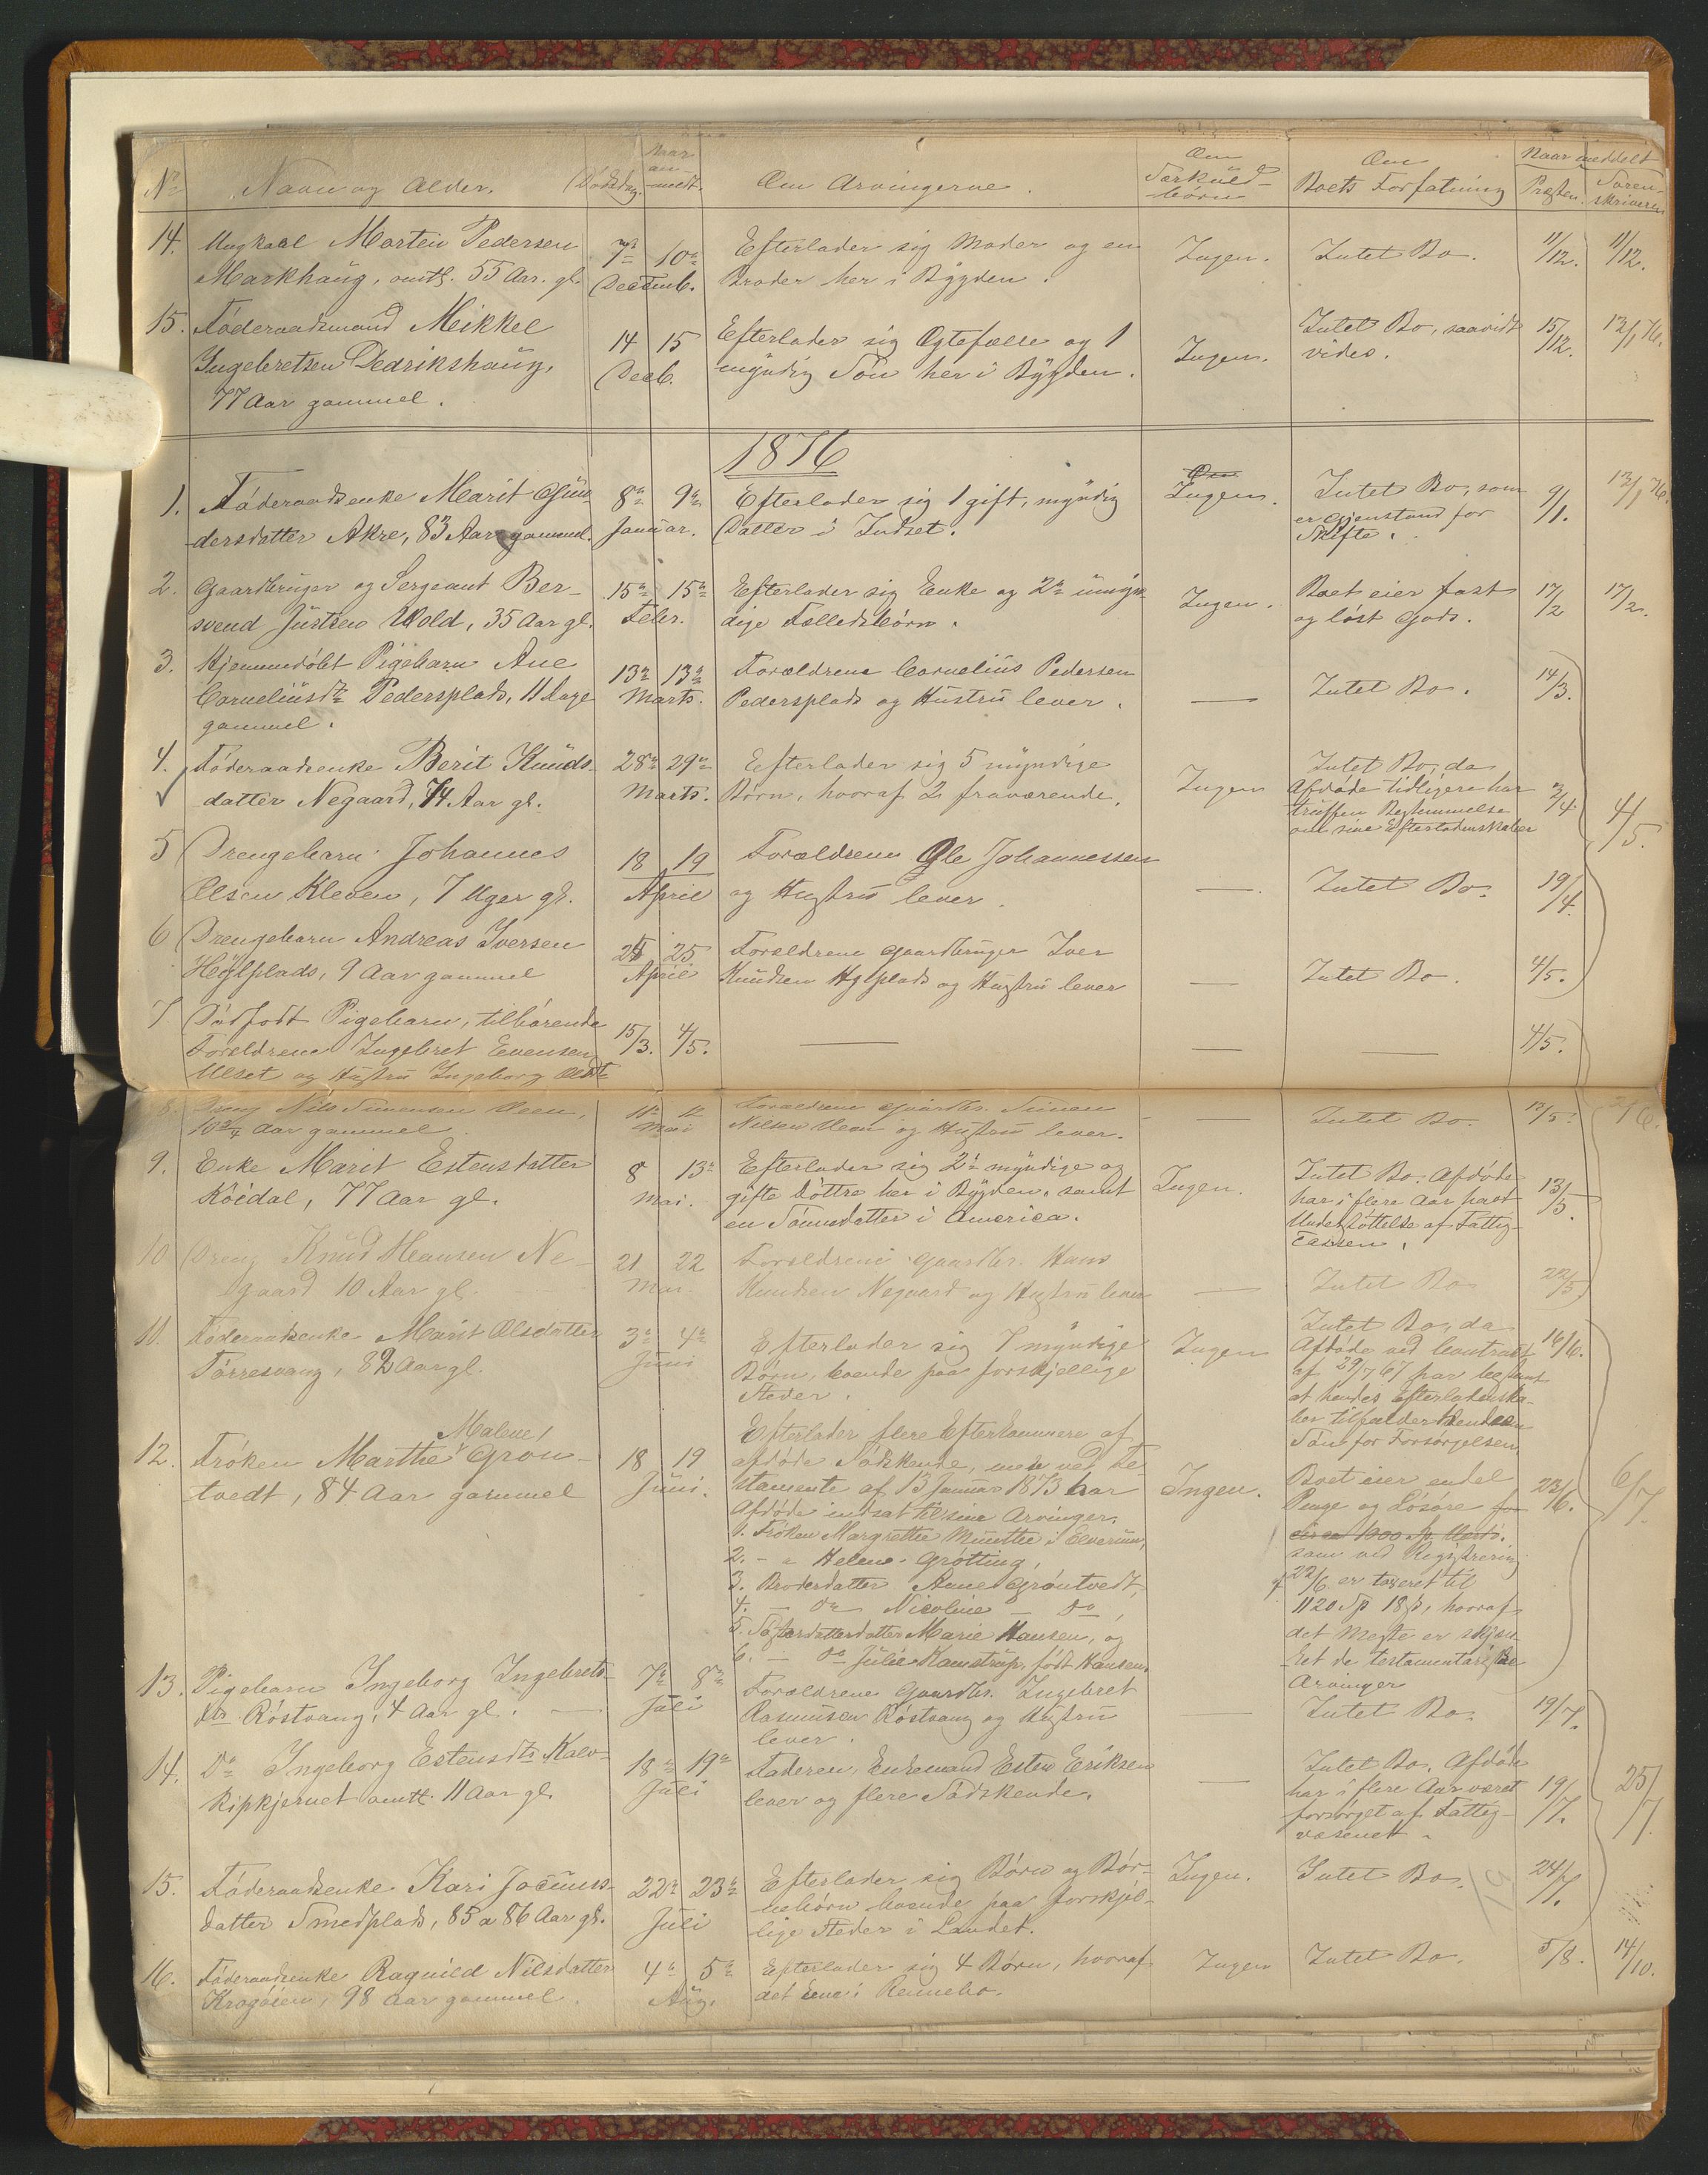 No Navn og Alder. Dödsdag. Naar anmeldt. Om Arvingerne. Om Særkuldbörn Om Boets Forfatning Naar meddelt Præsten. Soren-skriveren
14. Ungkarl Morten Pedersen 7de 10de Efterlader sig Moder og en Ingen. Intet Bo. 11/12. 11/12.
Markhaug, omtr. 55 Aar. gl. Decemb. Broder her i Bÿgden.
15. Föderaadsmand Meikkel 14 15 Efterlader sig Ægtefælle og 1 Ingen. Intet Bo, saavidt 15/12. 13/1 76.
Ingebretsen Dedrikshaug, Decb. mÿndig Sön her i Bÿgden. vides.
77 Aar gammel.
1876
1. Föderaadsenke Marit Gün- 8de 9de Efterlader sig 1 gift, mÿndig Ingen. Intet Bo, som 9/1. 13/1 76.
dersdatter Akre, 83 Aar gammel. Januar. Datter i Indset. er Gjenstand for
Skifte.
2. Gaardbruger og Sergeant Ber- 15de 15de Efterlader sig Enke og 2de umÿn- Ingen. Boet eier fast 17/2 17/2.
svend Jüstsen Wold, 35 Aar gl. Febr. dige Fælledsbörn. og löst Gods.
3. Hjemmedöbt Pigebarn Ane 13de 13de Forældrene Cornelius Pedersen
Corneliüsdtr Pedersplads, 11 Dage Marts. Pedersplads og Hustrü lever. — Intet Bo. 14/3.
gammel.
4. Föderaadsenke Berit Knüds- 28de 29de Efterlader sig 5 mÿndige Ingen Intet Bo, da
datter Negaard, 74 Aar gl. Marts. Börn, hvoraf 2 fraværende. Afdöde tidligere har 3/4 4/5.
truffen Bestemmelse
om sine Efterladenskaber
5 Drengebarn Johannes 18 19 Forældrene Ole Johannessen
Olsen Kleven, 7 Uger gl. April og Hustrü lever. — Intet Bo. 19/4.
6 Drengebarn Andreas Iversen 25 25 Forældrene Gaardbruger Iver
Höÿlplads, 9 Aar gammel April Knudsen Hÿlplads og Hustrü lever — Intet Bo. 4/5.
7 Dödfödt Pigebarn, tilhörende 15/3. 4/5. — — — 4/5.
Forældrene Ingebret Evensen
Ulset og Hustrü Ingeborg Olsdtr
8. Dreng Nils Simensen Moen, 11te 12 Forældrene Gaardbr. Simen — Intet Bo. 12/5. 2/6.
10 3/4 Aar gammel. Mai Nilsen Moen og Hustrü lever.
9. Enke Marit Estensdatter 8 13de Efterlader sig 2de mÿndige og Ingen. Intet Bo. Afdöde 13/5.
Röidal, 77 Aar gl. Mai. gifte Döttre her i Bÿgden, samt har i flere Aar havt
en Sönnedatter i America. Understöttelse af Fattig-
cassen.
10 Dreng Knud Hansen Ne- 21 22 Forældrene Gaardbr. Hans
gaard 10 Aar gl. Mai. Knudsen Negaard og Hustrü lever — Intet Bo 22/5.
11. Föderaadsenke Marit Olsdatter 3de 4de Efterlader sig 7 mÿndige Ingen Intet Bo, da 16/6.
Törresvang, 82 Aar gl. Juni Börn, boende paa forskjellige Afdöde ved Contract
Steder. af 29/7 67 har bestemt
at hendes Efterladenska-
ber tilfalder hendes
Sön for Forsörgelsen
12. Fröken Marthe Malene Grön- 18 19 Efterlader flere Efterkommere af
tvedt, 84 Aar gammel Jüni. afdöde Södskende, men ved Te- Ingen. Boet eier endel 22/6. 6/7.
stamente af 13 Januar 1873 har Penge og Lösöre for
Afdöde indsat til sine Arvinger. circa 1000 Sp. Værdi.
1. Fröken Margrethe Münthe i Elverum, som ved Registrering
2. - " Helene Grötting, af 22/6 er taxeret til
3. Broderdatter Anne Gröntvedt, 1120 Sp 18 ß, hvoraf
4. — Do Nicoline — Do, det Meste er skjæn-
5. Sösterdatterdatter Marie Hansen, og ket de testamentariske
6. — Do Julie Kamstrup, född Hansen. Arvinger
13. Pigebarn Ingeborg Ingebrets- 7de 8de Forældrene Gaardbr. Ingebret
dtr Röstvang, 4 Aar gl. Juli Rasmusen Röstvang og Hustrü — Intet Bo. 19/7.
lever.
14. Do Ingeborg Estensdtr Kalv- 18de 19de Faderen, Enkemand Esten Eriksen — Intet Bo. Afdöde
Ripkjernet omtr. 11 Aar gl. Juli lever og flere Södskende. har i flere Aar været 19/7. 25/7.
forsörget af Fattig-
væsenet.
15. Föderaadsenke Kari Joenns- 22de 23de Efterlader sig Börn og Bör- Ingen. Intet Bo. 24/7.
datter Smedplads, 85 a 86 Aar gl. Juli nebörn boende paa forskjel-
lige Steder i Landet.
16. Föderaadsenke Ragnild Nilsdatter 4de 5te Efterlader sig 4 Börn, hvoraf Ingen Intet Bo. 5/8. 14/10.
Krogöien, 98 Aar gammel. Aug. det Ene i Rennebo.